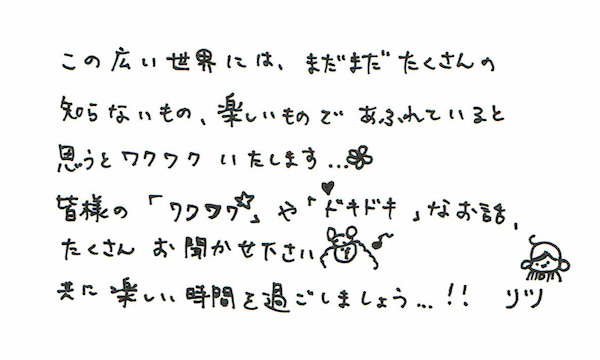 この広い世界には、まだまだたくさんの
知らないもの、楽しいものであふれていると
思うとワクワクいたします...
皆様の「ワクワク」や「ドキドキ」なお話、
たくさんお聞かせ下さい
共に楽しい時間を過ごしましょう...!! リツ